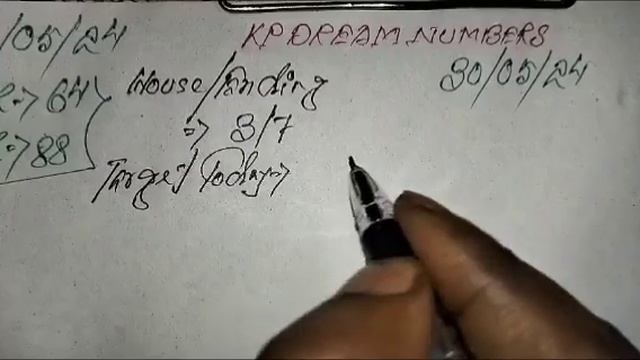 /05/24 KP DREAM NUMBERS
30/05/24
=> 64 House/Ending
=> 88 => 3/7
Target Today=>